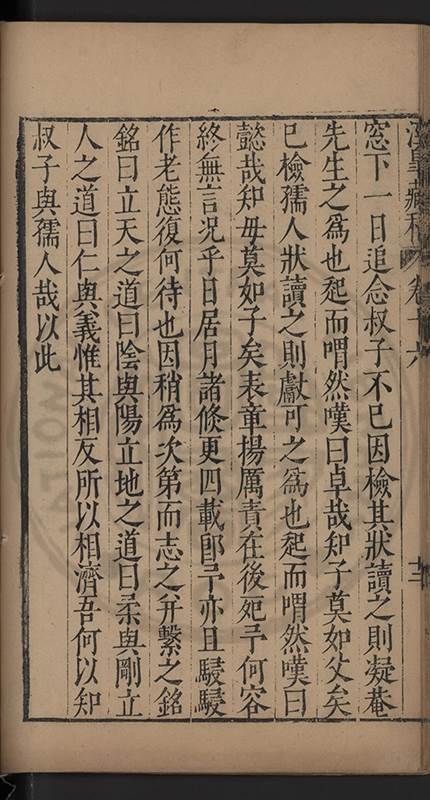 窓下一日追念叔子不已因檢其狀讀之則凝菴
先生之爲也起而喟然嘆曰卓哉知子莫如父矣
已檢孺人狀讀之則獻可之爲也起而喟然嘆曰
懿哉知毋莫如子矣表章揚厲責在後死予何容
終無言况乎日居月諸倐更四載卽予亦且駸駸
作老態復何待也因稍爲次第而志之并繫之銘
銘曰立天之道曰陰與陽立地之道曰柔與剛立
人之道曰仁與義惟其相反所以相濟吾何以知
叔子與孺人哉以此
藏稿 卷十六 十二